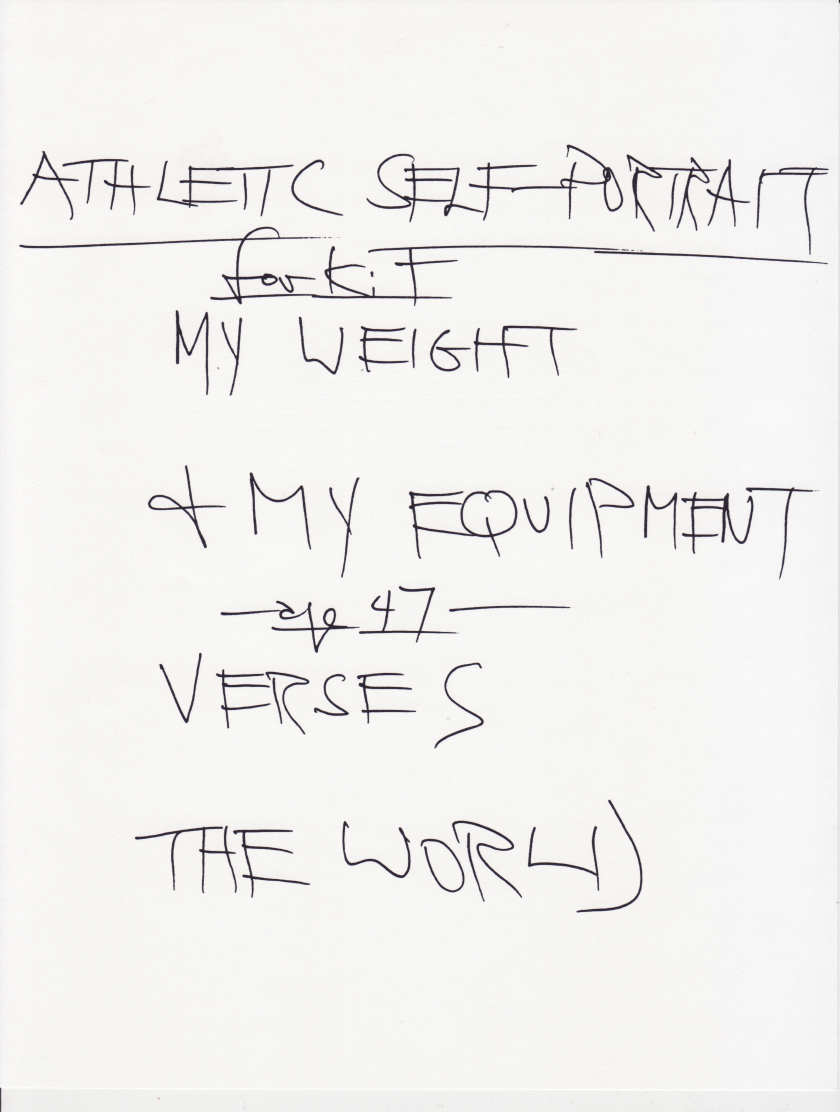 ATHLETIC SELF-PORTRAIT
for KiT
MY WEIGHT
+ MY EQUIPMENT
— age 47 —
VERSES
THE WORLD